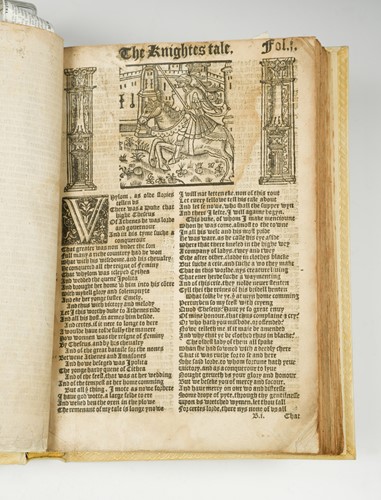 The Knightes tale.
Fol.j.
Whylom, as olde stories
tellen us
There was a Duke that
hight Theseus
Of Athenes he was lorde
and governour
And in his tyme suche a
conquerour
That greater was non under the son
Full many a riche countrey had he won
What with his wisdome, and his chevalry
He conquered all the reigne of Feminy
That whylom was icleped Cythea
And wedded the quene Ipolita
And brought her home with him into his countre
With mykell glory and solempnyte
And eke her yonge suster Emely
And thus with victory and melody
Let I this worthy duke to Athenes ride
And all his host, in armes him beside.
And certes, if it nere to longe to here
I wolde have tolde fully the manere
How wonnen was the reigne of Feminy
By Theseus, and by his chevalry
And of the great bataile for the nones
Betwene Athenes and Amasones
And how beseged was Ipolita
The yonge hardy quene of Cithea
And of the feest, that was at her wedding
And of the tempest at her home comming
But all thing, I mote as now forbere
I have god wotte, a large felde to ere
And weked ben the oxen in the plowe
The remenant of my tale is longe ynowe
I will nat letten eke, non of this rout
Let every felowe tell his tale about
And let se nowe, who shall the supper wyn
And there I lefte, I will againe begyn.
This duke, of whom I make mencioun
Whan he was come, almost to the towne
In all his wele and his most pride
He was ware, as he caste his eye aside
Where that there kneled in the high wey
A company of ladyes, twey and twey
Eche after other, cladde in clothes blacke
But suche a crie, and suche a wo they make
That in this worlde, nys creature living
That ever herde suche a waymenting
And of this crie, they nolde never stenten
Tyll they the reines of his bridell henten
What folke be ye, that at myn home comming
Pertourben so my feest with crieng
Quod Theseus: Have ye so great envy
Of mine honour, that thus complaine & cry?
Or who hath you misbode, or offended?
Nowe telleth me if it maie be amended
And why that ye be clothed thus in blacke?
The oldest lady of them all spake
Whan she had swouned with a deedly chere
That it was ruthe for to se and here
She said: lorde, to whom fortune hath yeve
Victory, and as a conquerour to lyve
Nought greveth us your glory and honour
But we beseke you of mercy and socour.
And have mercy on our wo and distresse
Some drope of pyte, through thy gentilnesse
Upon us wretched wymen, let thou fall
For certes lorde, there nys none of us all
B.i.
That